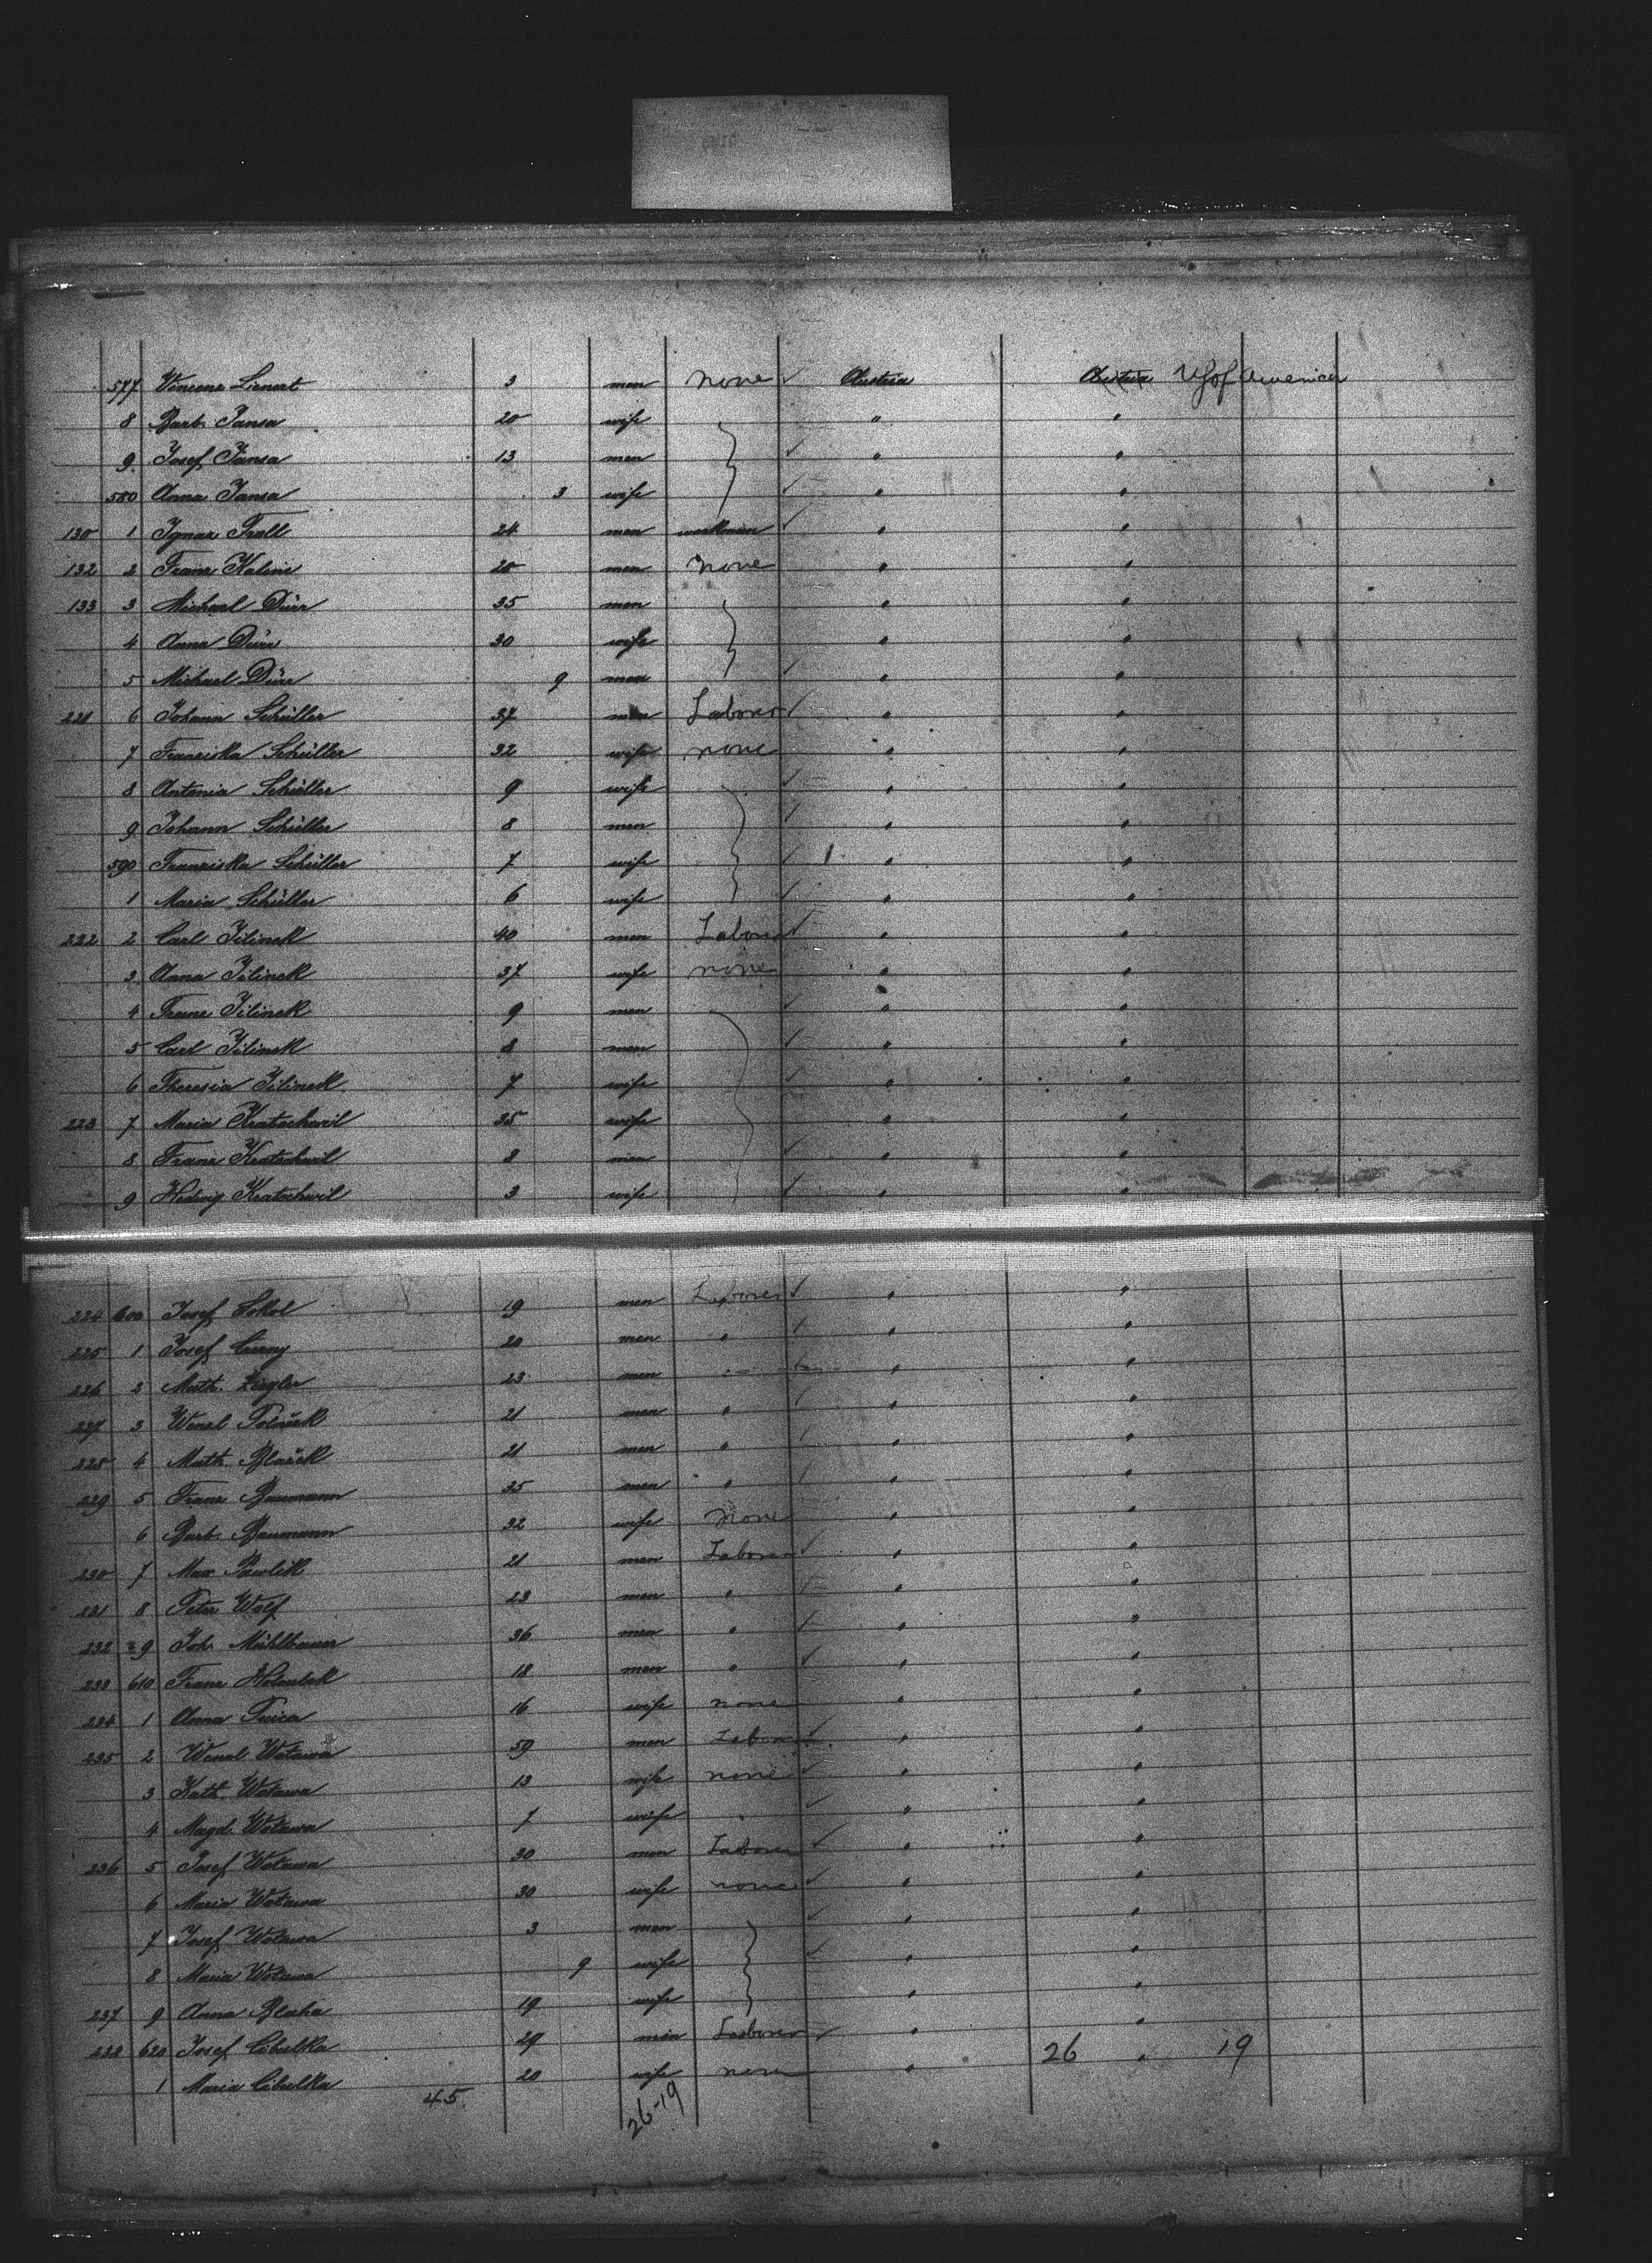 577 Vincenz Lienert 3 men none ✓ Austria Austria US of America
8 Barb. Jansa 20 wife " "
9 Josef Jansa 13 men ✓ " "
580 Anna Jansa 3 wife ✓ " "
130 1 Ignaz Trall 24 men workman ✓ " "
132 2 Franz Kalini 20 men None " "
133 3 Michael Dürr 35 men " "
4 Anna Dürr 30 wife " "
5 Michael Dürr 9 men ✓ " "
221 6 Johann Schüller 37 men Laborer ✓ " "
7 Franziska Schüller 32 wife none " "
8 Antonia Schüller 9 wife ✓ " "
9 Johann Schüller 8 men ✓ " "
590 Franziska Schüller 7 wife ✓ " "
1 Maria Schüller 6 wife ✓ " "
222 2 Carl Jilinek 40 men Laborer ✓ " "
3 Anna Jilinek 37 wife none " "
4 Franz Jilinek 9 men ✓ " "
5 Carl Jilinek 8 men ✓ " "
6 Theresia Jilinek 7 wife ✓ " "
223 7 Maria Kratochwil 35 wife " "
8 Franz Kratochwil 8 men ✓ " "
9 Hedwig Kratochwil 3 wife ✓ " "
224 600 Josef Sokol 19 men Laborer ✓ " "
225 1 Josef Cerny 20 men " ✓ " "
226 2 Math. Ziegler 23 men " " "
227 3 Wenzl 21 men " ✓ " "
228 4 Math. 21 men " ✓ " "
229 5 Franz Baumann 35 men " ✓ " "
6 Barb. Baumann 32 wife None " "
230 7 Max Pawlik 21 men Laborer ✓ " "
231 8 Peter Wolf 23 men " ✓ " "
232 9 Joh. Mühlbauer 36 men " ✓ " "
233 610 Franz Holoubek 18 men " ✓ " "
234 1 Anna 16 wife none " "
235 2 Wenzl Wotawa 59 men Laborer ✓ " "
3 Kath. Wotawa 13 wife none ✓ " "
4 Magd. Wotawa 7 wife ✓ " "
236 5 Josef Wotawa 30 men Laborer ✓ " "
6 Maria Wotawa 30 wife none ✓ " "
7 Josef Wotawa 3 men ✓ " "
8 Maria Wotawa 9 wife ✓ " "
237 9 Anna Blaha 19 wife "
238 620 Josef Cibulka 29 men Laborer ✓ " "
1 Maria Cibulka 20 wife none " 26 " 19
45 26-19